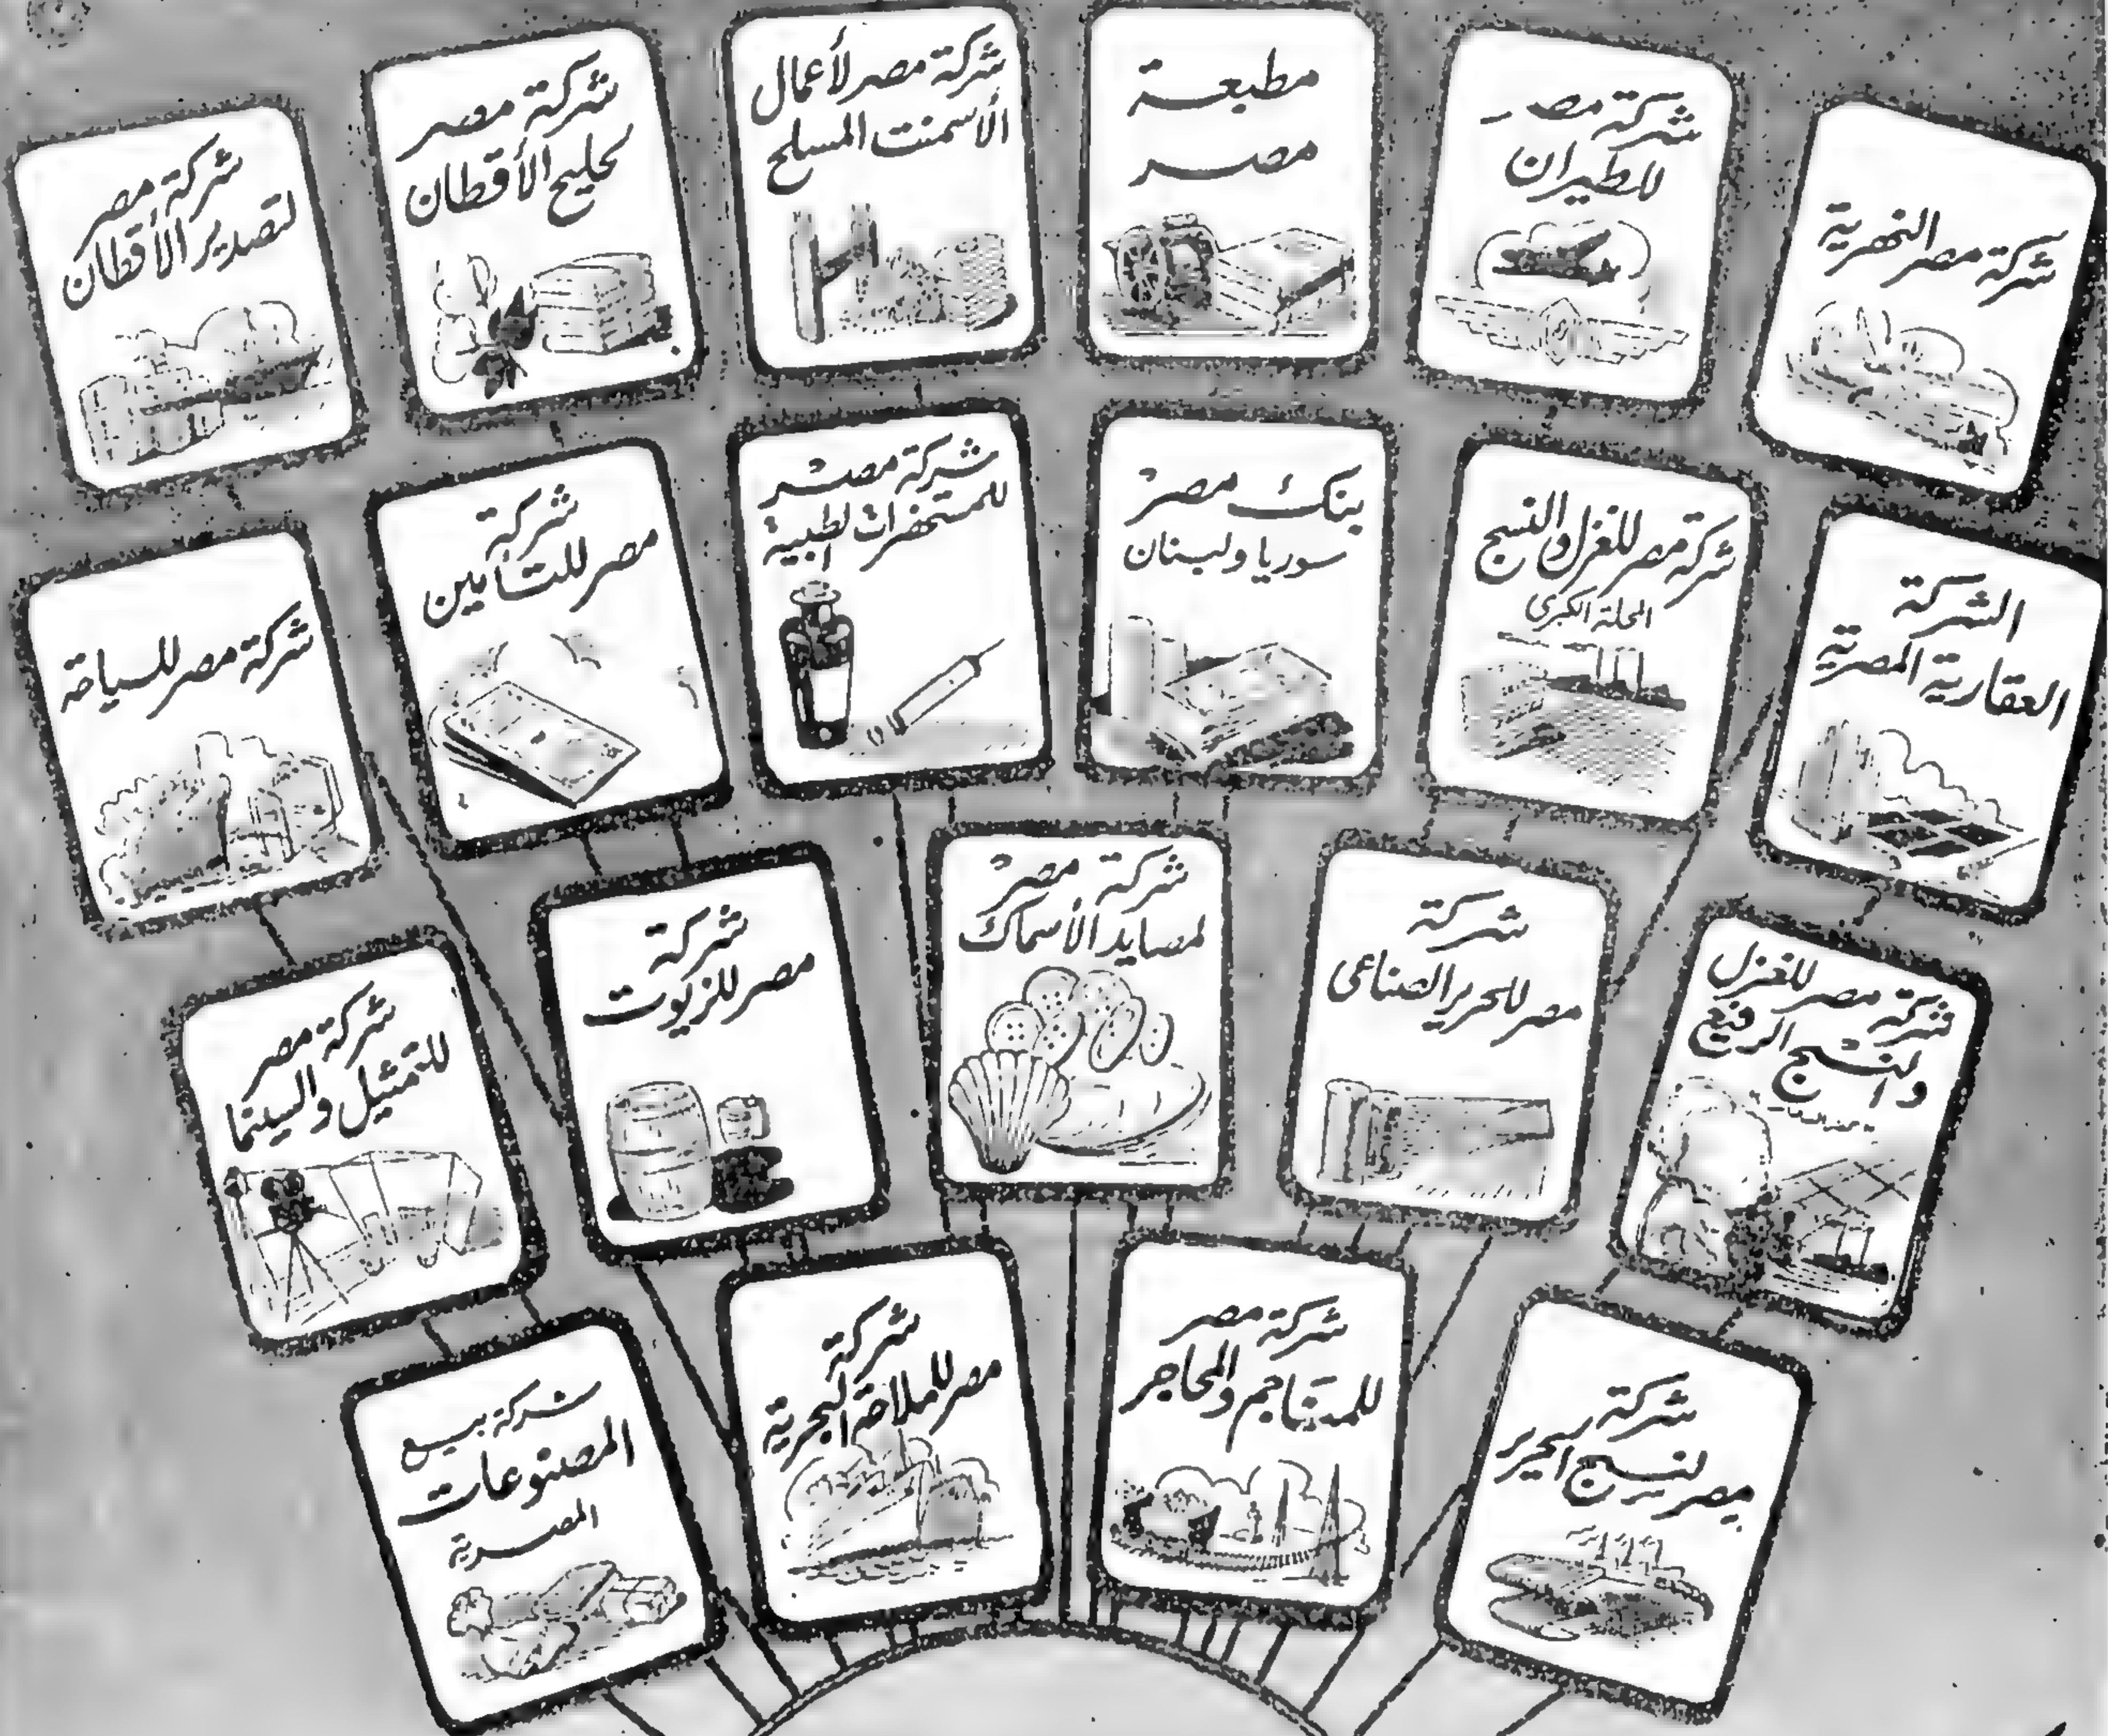 شركة مصر النهرية
شركة مصر
للطيران
مطبعة
مصر
شركة مصر لأعمال
الأسمنت المسلح
شركة مصر
لحليج الأقطان
شركة مصر
لتصدير الأقطان
الشركة
العقارية المصرية
شركة مصر للغزل والنسج
المحلة الكبرى
بنك مصر
سوريا ولبنان
شركة مصر
للمستحضرات الطبية
شركة
مصر للتأمين
شركة مصر للسياحة
شركة مصر للغزل
والنسج الرفيع
شركة
مصر للحرير الصناعى
شركة مصر
لمصايد الأسماك
شركة
مصر للزيوت
شركة مصر
للتمثيل والسينما
شركة
مصر لنسج الحرير
شركة مصر
للمناجم والمحاجر
شركة
مصر للملاحة البحرية
شركة بيع
المصنوعات
المصرية